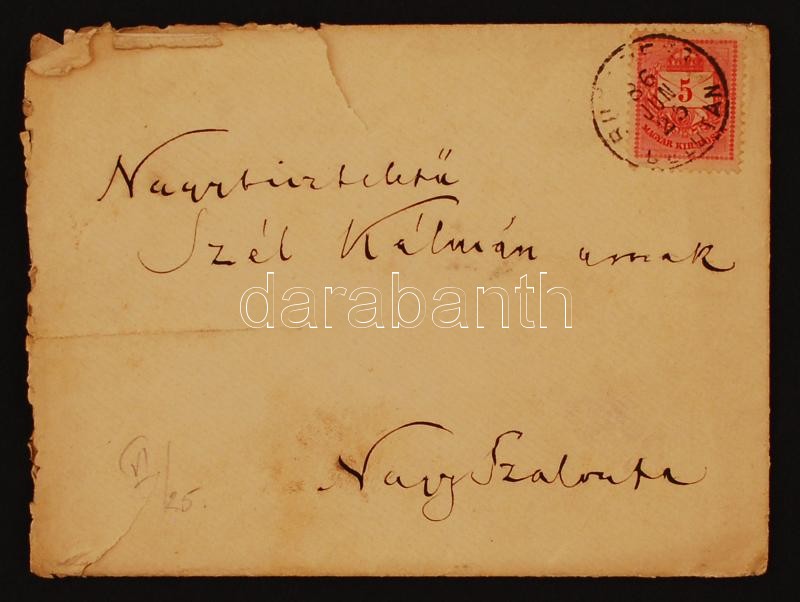 5
MAGYAR KIR. POSTA
Nagytiszteletű
Szél Kálmán urnak
darabanth
Nagy Szalonta
VI/25.